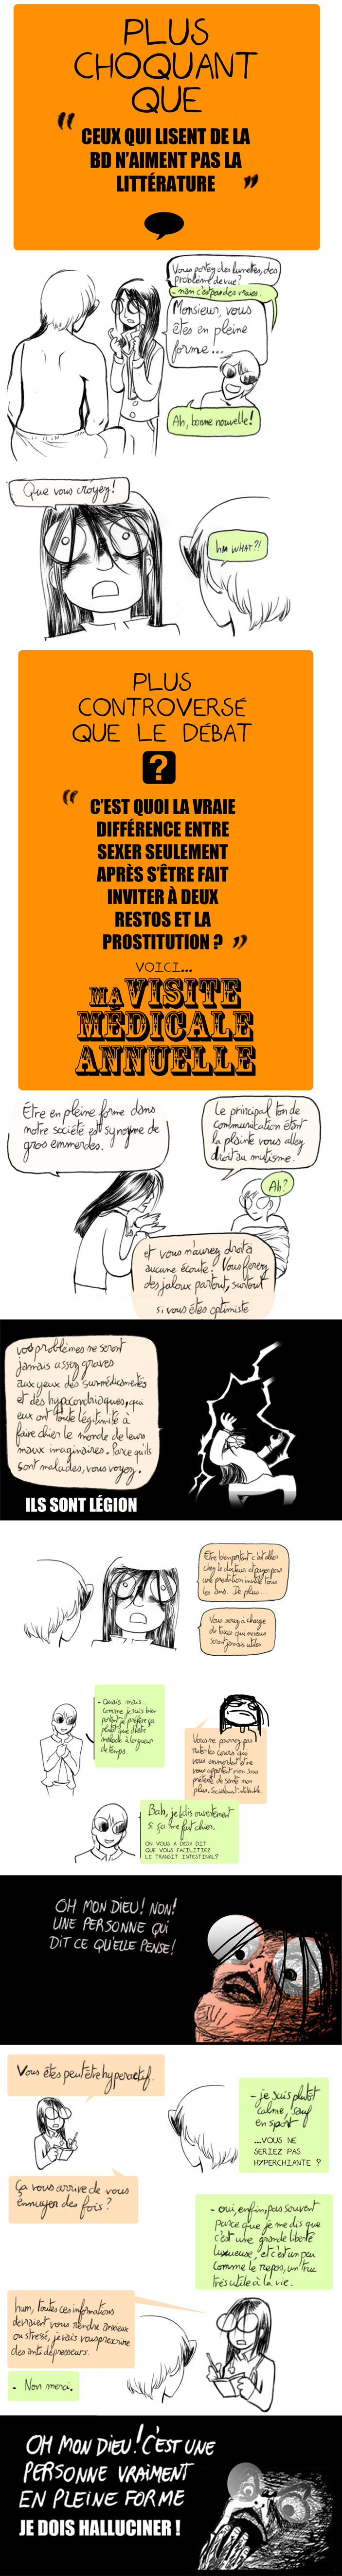 PLUS
CHOQUANT
QUE
“ CEUX QUI LISENT DE LA
BD N'AIMENT PAS LA
LITTÉRATURE ”
Vous portez des lunettes, des
problème de vue?
- non c'est pas des vraies.
Monsieur, vous
êtes en pleine
forme...
Ah, bonne nouvelle!
Que vous croyez!
hm WHAT?!
PLUS
CONTROVERSÉ
QUE LE DÉBAT
?
“ C'EST QUOI LA VRAIE
DIFFÉRENCE ENTRE
SEXER SEULEMENT
APRÈS S'ÊTRE FAIT
INVITER À DEUX
RESTOS ET LA
PROSTITUTION ? ”
VOICI...
MA VISITE
MÉDICALE
ANNUELLE
Être en pleine forme dans
notre société est synonyme de
gros emmerdes.
Le principal ton de
communication étant
la plainte vous allez
droit au mutisme.
Ah?
et vous n'aurez droit à
aucune écoute. Vous ferez
des jaloux partout, surtout
si vous êtes optimiste
vos problèmes ne seront
jamais assez graves
aux yeux des surmédicamentés
et des hypocondriaques, qui
eux ont toute légitimité à
faire chier le monde de leurs
maux imaginaires. Parce qu'ils
sont malades, vous voyez.
ILS SONT LÉGION
Être bien portant c'est aller
chez le docteur et payer pour
une prédiction inutile tous
les ans. De plus...
Vous serez à charge
de taxes qui ne vous
seront jamais utiles
- Ouais mais...
comme je suis bien
portant je préfère ça
plutôt que d'être
malade à longueur
de temps.
Vous ne pourrez pas
rater les cours qui
vous emmerdent et ne
vous apportent rien sous
prétexte de santé non
plus.
Bah, je le dis ouvertement
si ça me fait chier.
ON VOUS A DEJA DIT
QUE VOUS FACILITIEZ
LE TRANSIT INTESTINAL?
OH MON DIEU! NON!
UNE PERSONNE QUI
DIT CE QU'ELLE PENSE!
Vous êtes peut être hyperactif.
- je suis plutôt
calme, sauf
en sport
...VOUS NE
SERIEZ PAS
HYPERCHIANTE ?
Ça vous arrive de vous
ennuyer des fois?
- oui, enfin, pas souvent
parce que je me dis que
c'est une grande liberté
luxueuse, et c'est un peu
comme le repos, un truc
très utile à la vie.
hum, toutes ces informations
devraient vous rendre anxieux
ou stressé, je vais vous prescrire
des anti dépresseurs.
- Non merci.
OH MON DIEU! C'EST UNE
PERSONNE VRAIMENT
EN PLEINE FORME
JE DOIS HALLUCINER !